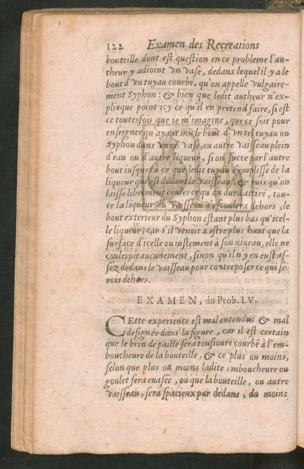 122 Examen des Recreations
bouteille dont est question en ce probleme l'au-
theur y adioint vn vase, dedans lequel il y a le
bout d'vn tuyau courbé, qu'on appelle vulgaire-
ment Syphon: & bien que ledit autheur n'ex-
plique point icy ce qu'il en pretend faire, si est
ce toutesfois que ie m'imagine, que ce soit pour
enseigner qu'ayant mis le bout d'vn tel tuyau ou
Syphon dans vn vase, ou autre vaisseau plein
d'eau ou d'autre liqueur, si on succe par l'autre
bout iusqu'à ce que ledit tuyau s'emplisse de la
liqueur qui est dedans le vaisseau, & puis qu'on
laisse librement couler ce qu'on aura attiré, tou-
te la liqueur du vaisseau s'escoulera dehors, le
bout exterieur du Syphon estant plus bas qu'icel-
le liqueur: car s'il venoit à estre plus haut que la
surface d'icelle ou iustement à son niueau, elle ne
couleroit aucunement, sinon qu'il n'y en eust as-
sez dedans le vaisseau pour contrepoiser ce qui se-
roit dehors.
EXAMEN, du Prob. LV.
Cette experience est mal entenduë & mal
designée dans la figure, car il est certain
que le brin de paille sera tousiours courbé à l'em-
boucheure de la bouteille, & ce plus ou moins,
selon que plus ou moins ladite emboucheure ou
goulet sera euasée, ou que la bouteille, ou autre
vaisseau, sera spacieux par dedans, du moins